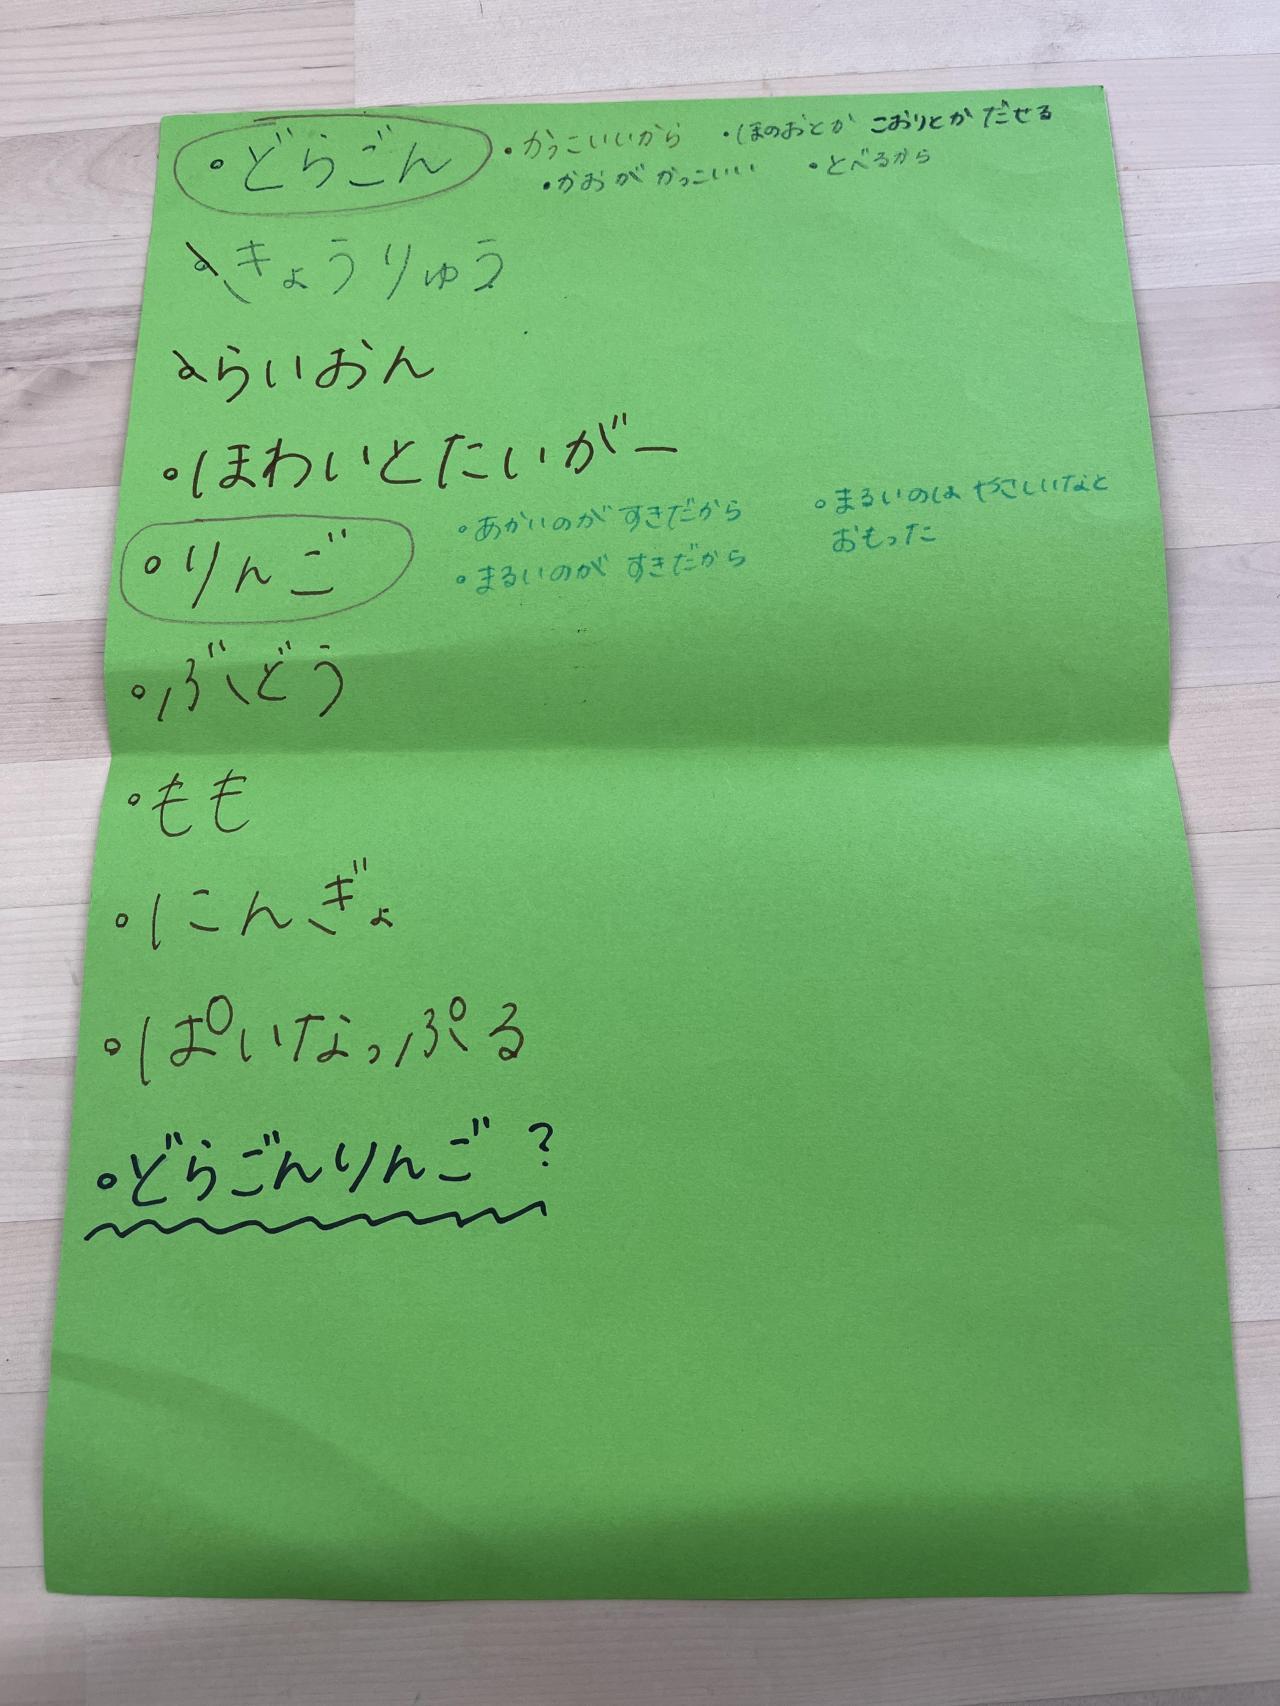 ・どらごん ・かっこいいから ・ほのおとか こおりとか だせる
・かおが かっこいい ・とべるから
・きょうりゅう
・らいおん
・ほわいとたいがー
・りんご ・あかいのが すきだから ・まるいのは やさしいなと
おもった
・まるいのが すきだから
・ぶどう
・もも
・にんぎょ
・ぱいなっぷる
・どらごんりんご?